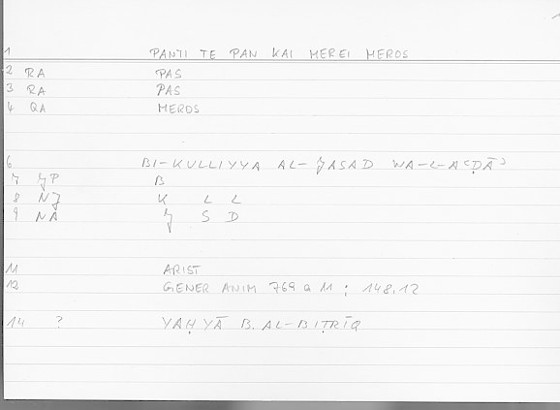 1 PANTI TE PAN KAI MEREI MEROS
2 RA PAS
3 RA PAS
4 QA MEROS
6 BI-KULLIYYA AL-ǦASAD WA-L-AʿḌĀʾ
7 ǦP B
8 NǦ K L L
9 NA Ǧ S D
11 ARIST
12 GENER ANIM 769 a 11 ; 148,12
14 ? YAḤYĀ B. AL-BIṬRĪQ